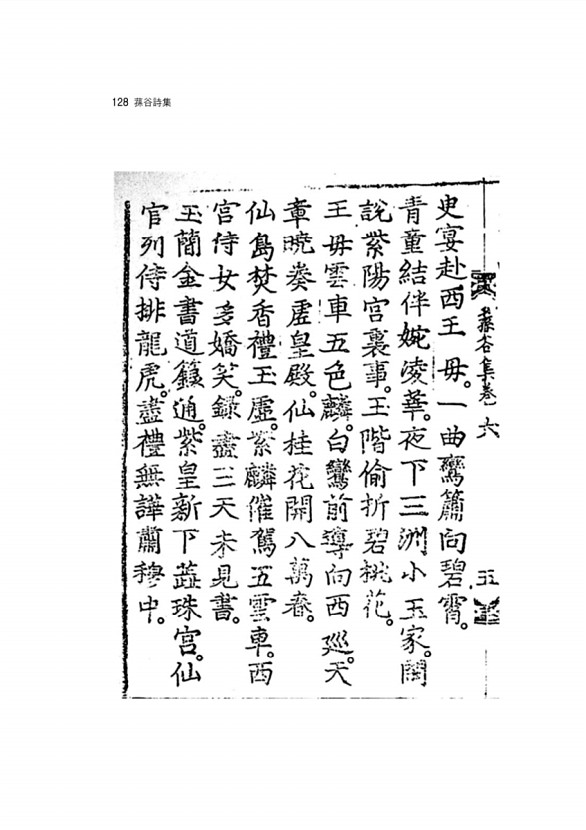 128 蓀谷詩集
蓀谷集卷六
五
史宴赴西王毋。一曲鸞簫向碧霄。
青童結伴婉凌華。夜下三洲小玉家。閒
說紫陽宮裏事。玉階偷折碧桃花。
王毋雲車五色麟。白鸞前導向西巡。天
章曉奏虛皇殿。仙桂花開八萬春。
仙島焚香禮玉虛。紫麟催駕五雲車。西
宮侍女多嬌笑。錄盡三天未見書。
玉簡金書道籙通。紫皇新下蘂珠宮。仙
官列侍排龍虎。盡禮無譁肅穆中。